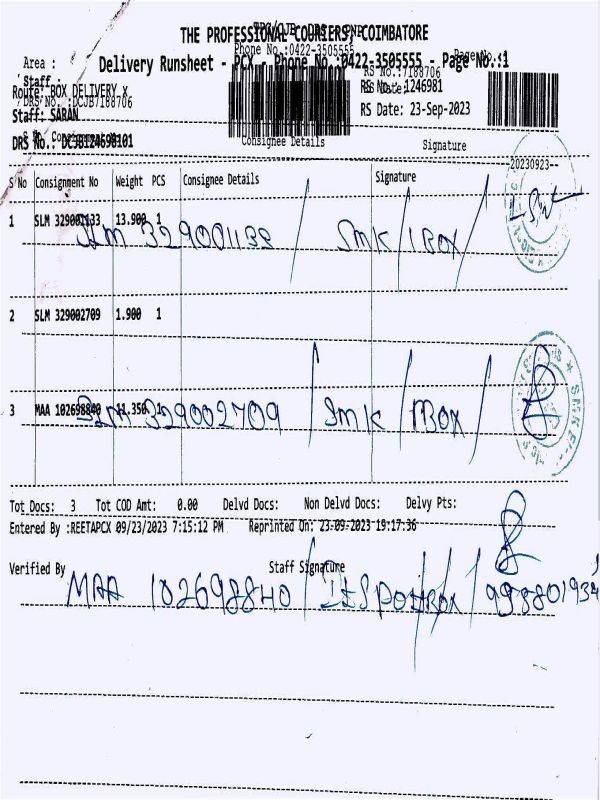 THE PROFESSIONAL COURIERS, COIMBATORE
Phone No.:0422-3505555
Area :
Delivery Runsheet - PCX - Phone No.:0422-3505555 - Page No.:1
Staff :
RS No.:7188706
Route: BOX DELIVERY X
RS No.: 1246981
DRS No.: DCJB7188706
Staff: SARAN
RS Date: 23-Sep-2023
DRS No.: DCJB124698101
Consignee Details
Signature
20230923
S No Consignment No Weight PCS Consignee Details Signature
1 SLM 329001133 13.900 1
SLM 329001133 / SMK / 1 BOX /
2 SLM 329002709 1.900 1
3 MAA 102698840 11.350 1
SLM 329002709 / SMK / 1 BOX /
Tot Docs: 3 Tot COD Amt: 0.00 Delvd Docs: Non Delvd Docs: Delvy Pts:
Entered By :REETAPCX 09/23/2023 7:15:12 PM Reprinted On: 23-09-2023 19:17:36
Verified By Staff Signature
MAA 102698840